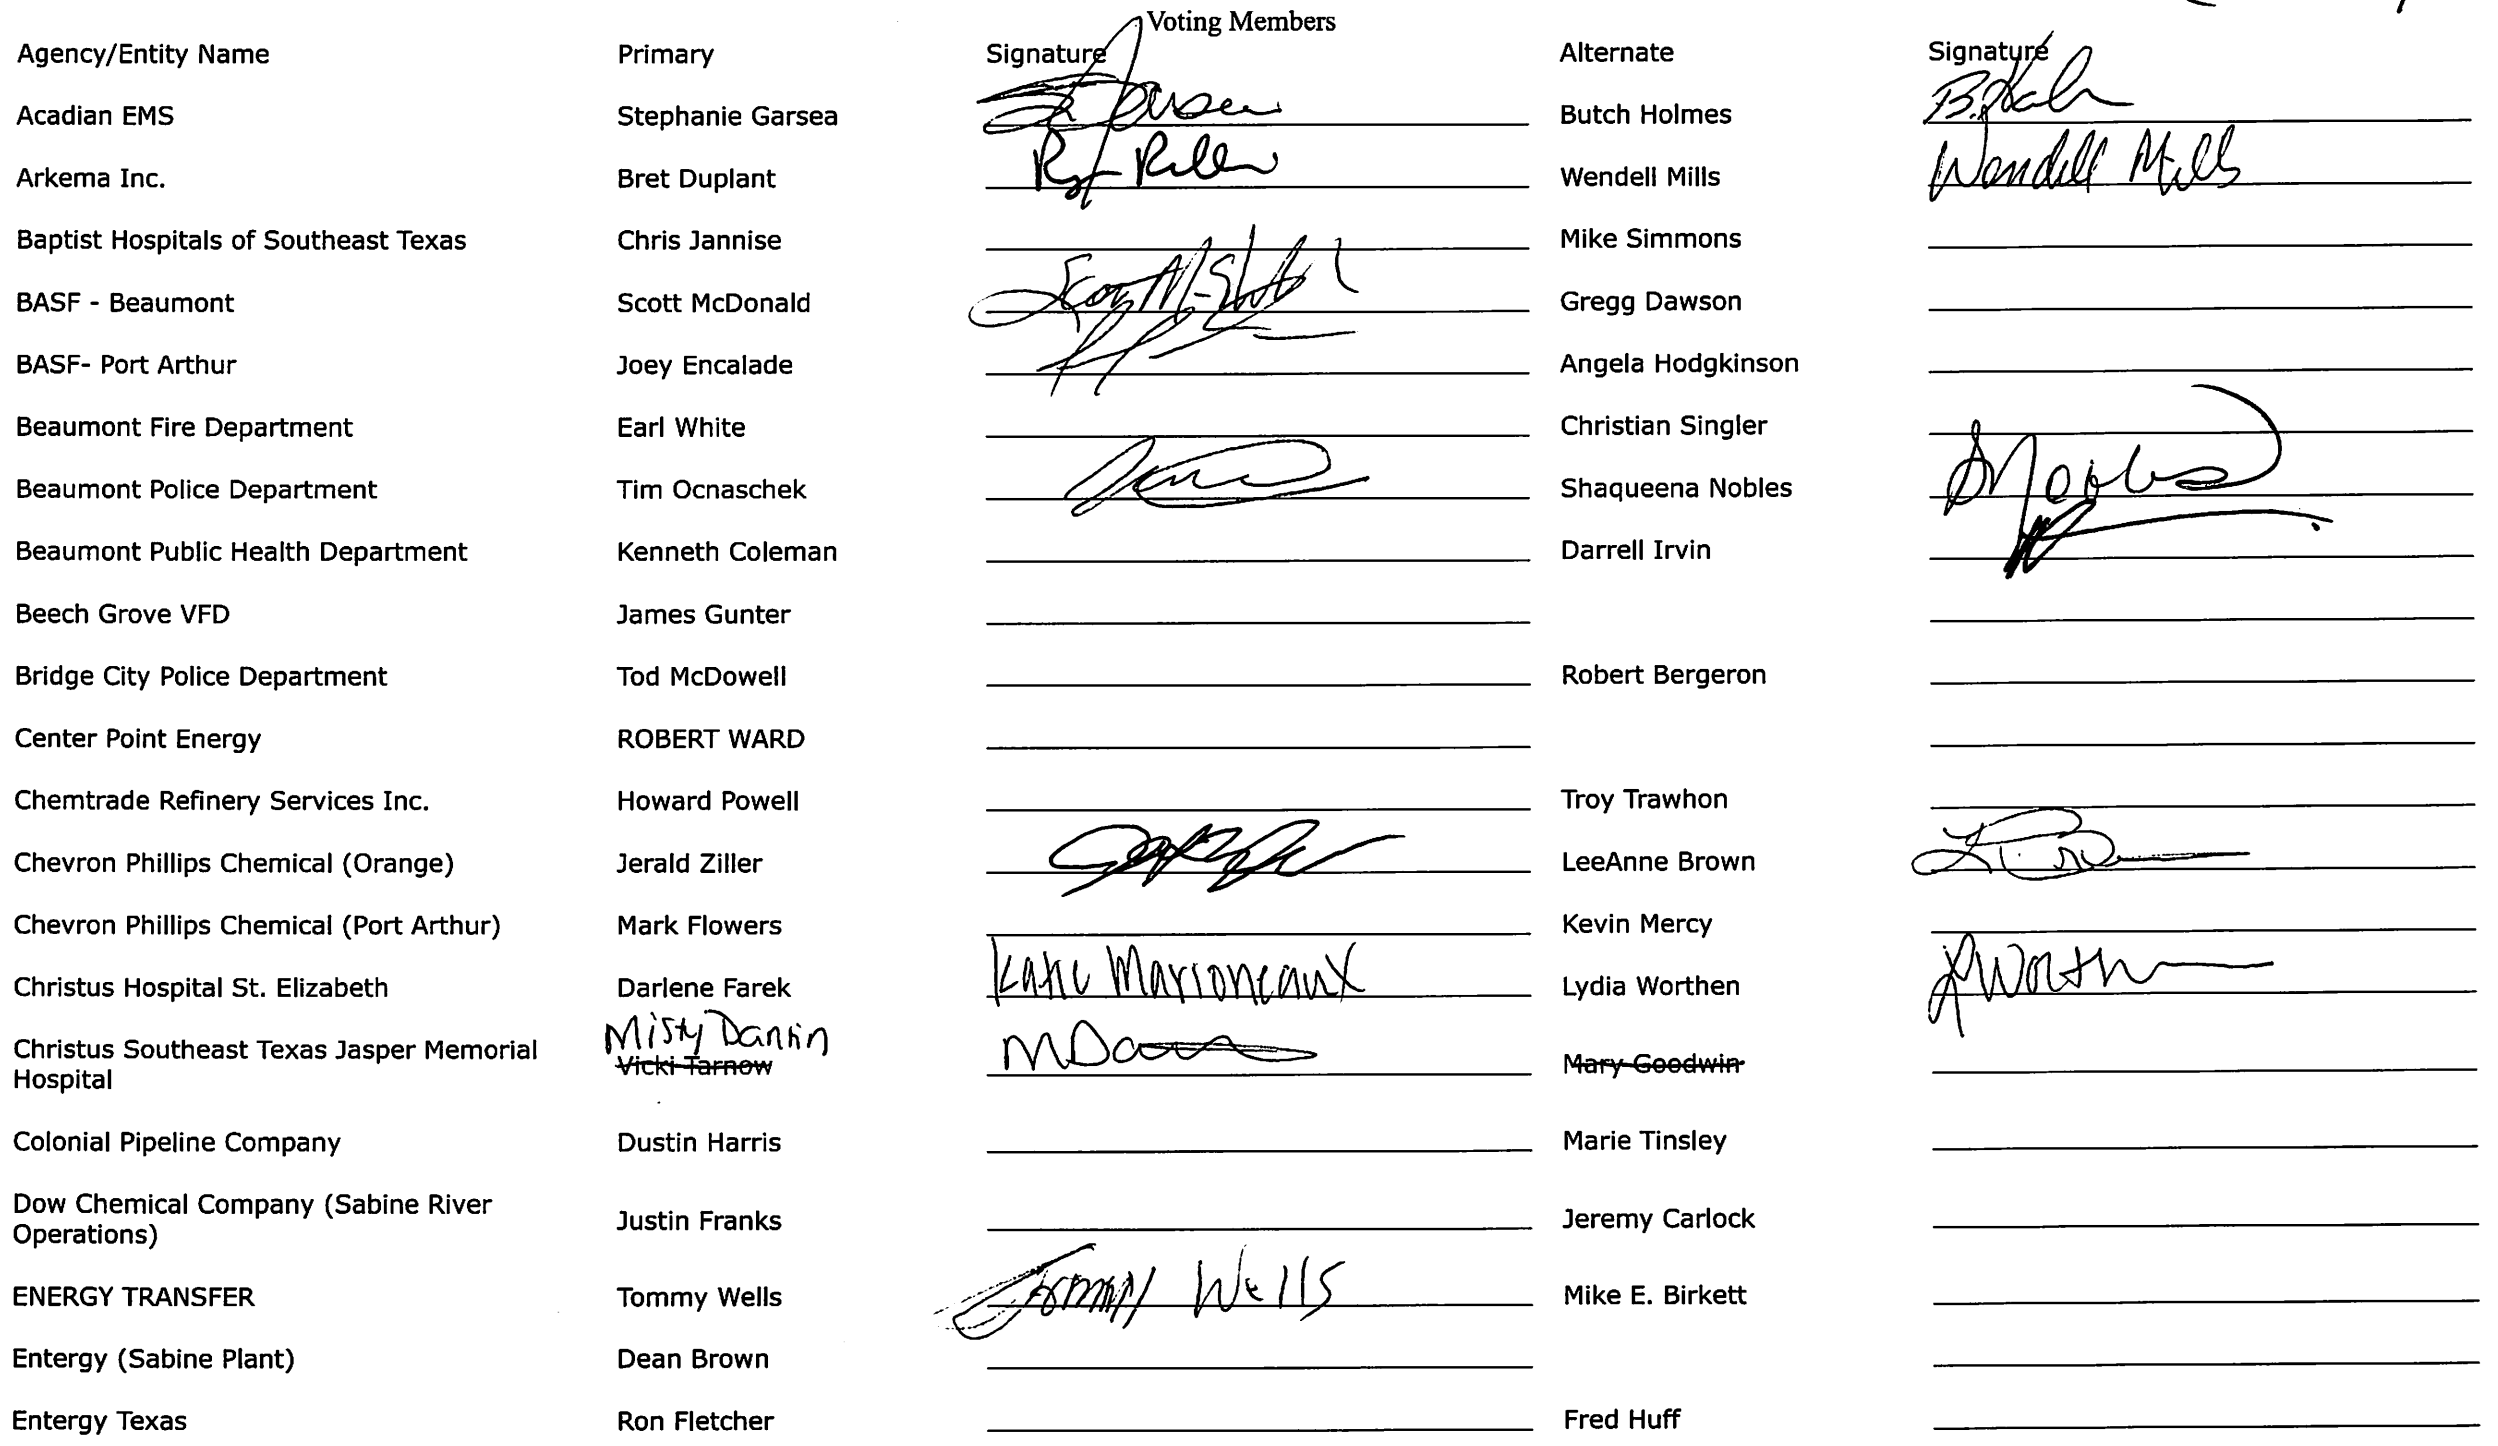 Voting Members
Agency/Entity Name Primary Signature Alternate Signature
Acadian EMS Stephanie Garsea Butch Holmes
Arkema Inc. Bret Duplant Wendell Mills Wendell Mills
Baptist Hospitals of Southeast Texas Chris Jannise Mike Simmons
BASF - Beaumont Scott McDonald Gregg Dawson
BASF- Port Arthur Joey Encalade Angela Hodgkinson
Beaumont Fire Department Earl White Christian Singler
Beaumont Police Department Tim Ocnaschek Shaqueena Nobles
Beaumont Public Health Department Kenneth Coleman Darrell Irvin
Beech Grove VFD James Gunter
Bridge City Police Department Tod McDowell Robert Bergeron
Center Point Energy ROBERT WARD
Chemtrade Refinery Services Inc. Howard Powell Troy Trawhon
Chevron Phillips Chemical (Orange) Jerald Ziller LeeAnne Brown
Chevron Phillips Chemical (Port Arthur) Mark Flowers Kevin Mercy
Christus Hospital St. Elizabeth Darlene Farek Katie Marioneaux Lydia Worthen LWorthen
Misty
Christus Southeast Texas Jasper Memorial Vicki Tarnow Mary Goodwin
Hospital
Colonial Pipeline Company Dustin Harris Marie Tinsley
Dow Chemical Company (Sabine River Justin Franks Jeremy Carlock
Operations)
ENERGY TRANSFER Tommy Wells Tommy Wells Mike E. Birkett
Entergy (Sabine Plant) Dean Brown
Entergy Texas Ron Fletcher Fred Huff